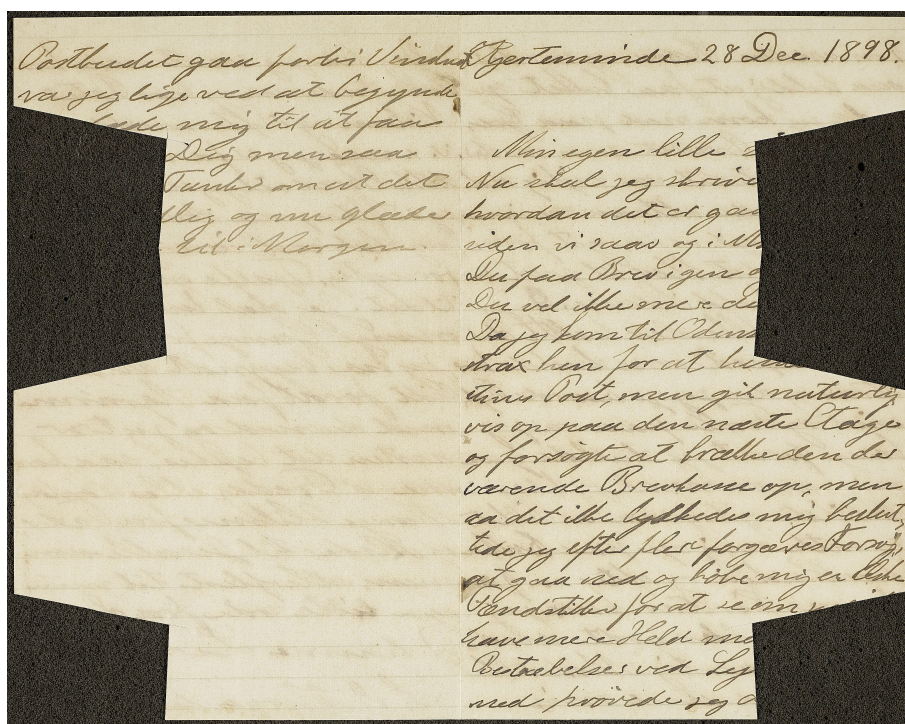 Postbudet gaa forbi Vindu
var jeg lige ved at begynde
mig til at faa
Dig men saa
Tanke om at det
dlig og nu glæde
til i Morgen.
Kjerteminde 28 Dec. 1898.
Min egen lille
Nu skal jeg skrive
hvordan det er gaa
siden vi saas og i M
Du faa Brev igen
Du vel ikke mere
Da jeg kom til Odens
strax hen for at
tins Post, men gik naturlig
vis op paa den næste Etage
og forsøgte at brække den der
værende Brevkasse op, men
da det ikke lykkedes mig beslut
tede jeg efter flere forgæves Forsøg,
at gaa ned og købe mig en Æske
Tændstikker for at se om
have mere Held med
Bestræbelser ved Ly
ned prøvede jeg